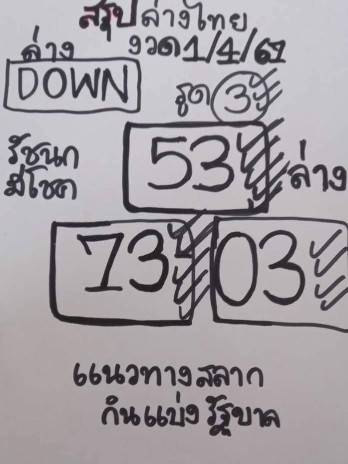 สรุปล่างไทย
ล่าง งวด1/4/61
DOWN รูด 3
รัชนก
มีโชค
53 ล่าง
73 03
แนวทางสลาก
กินแบ่งรัฐบาล